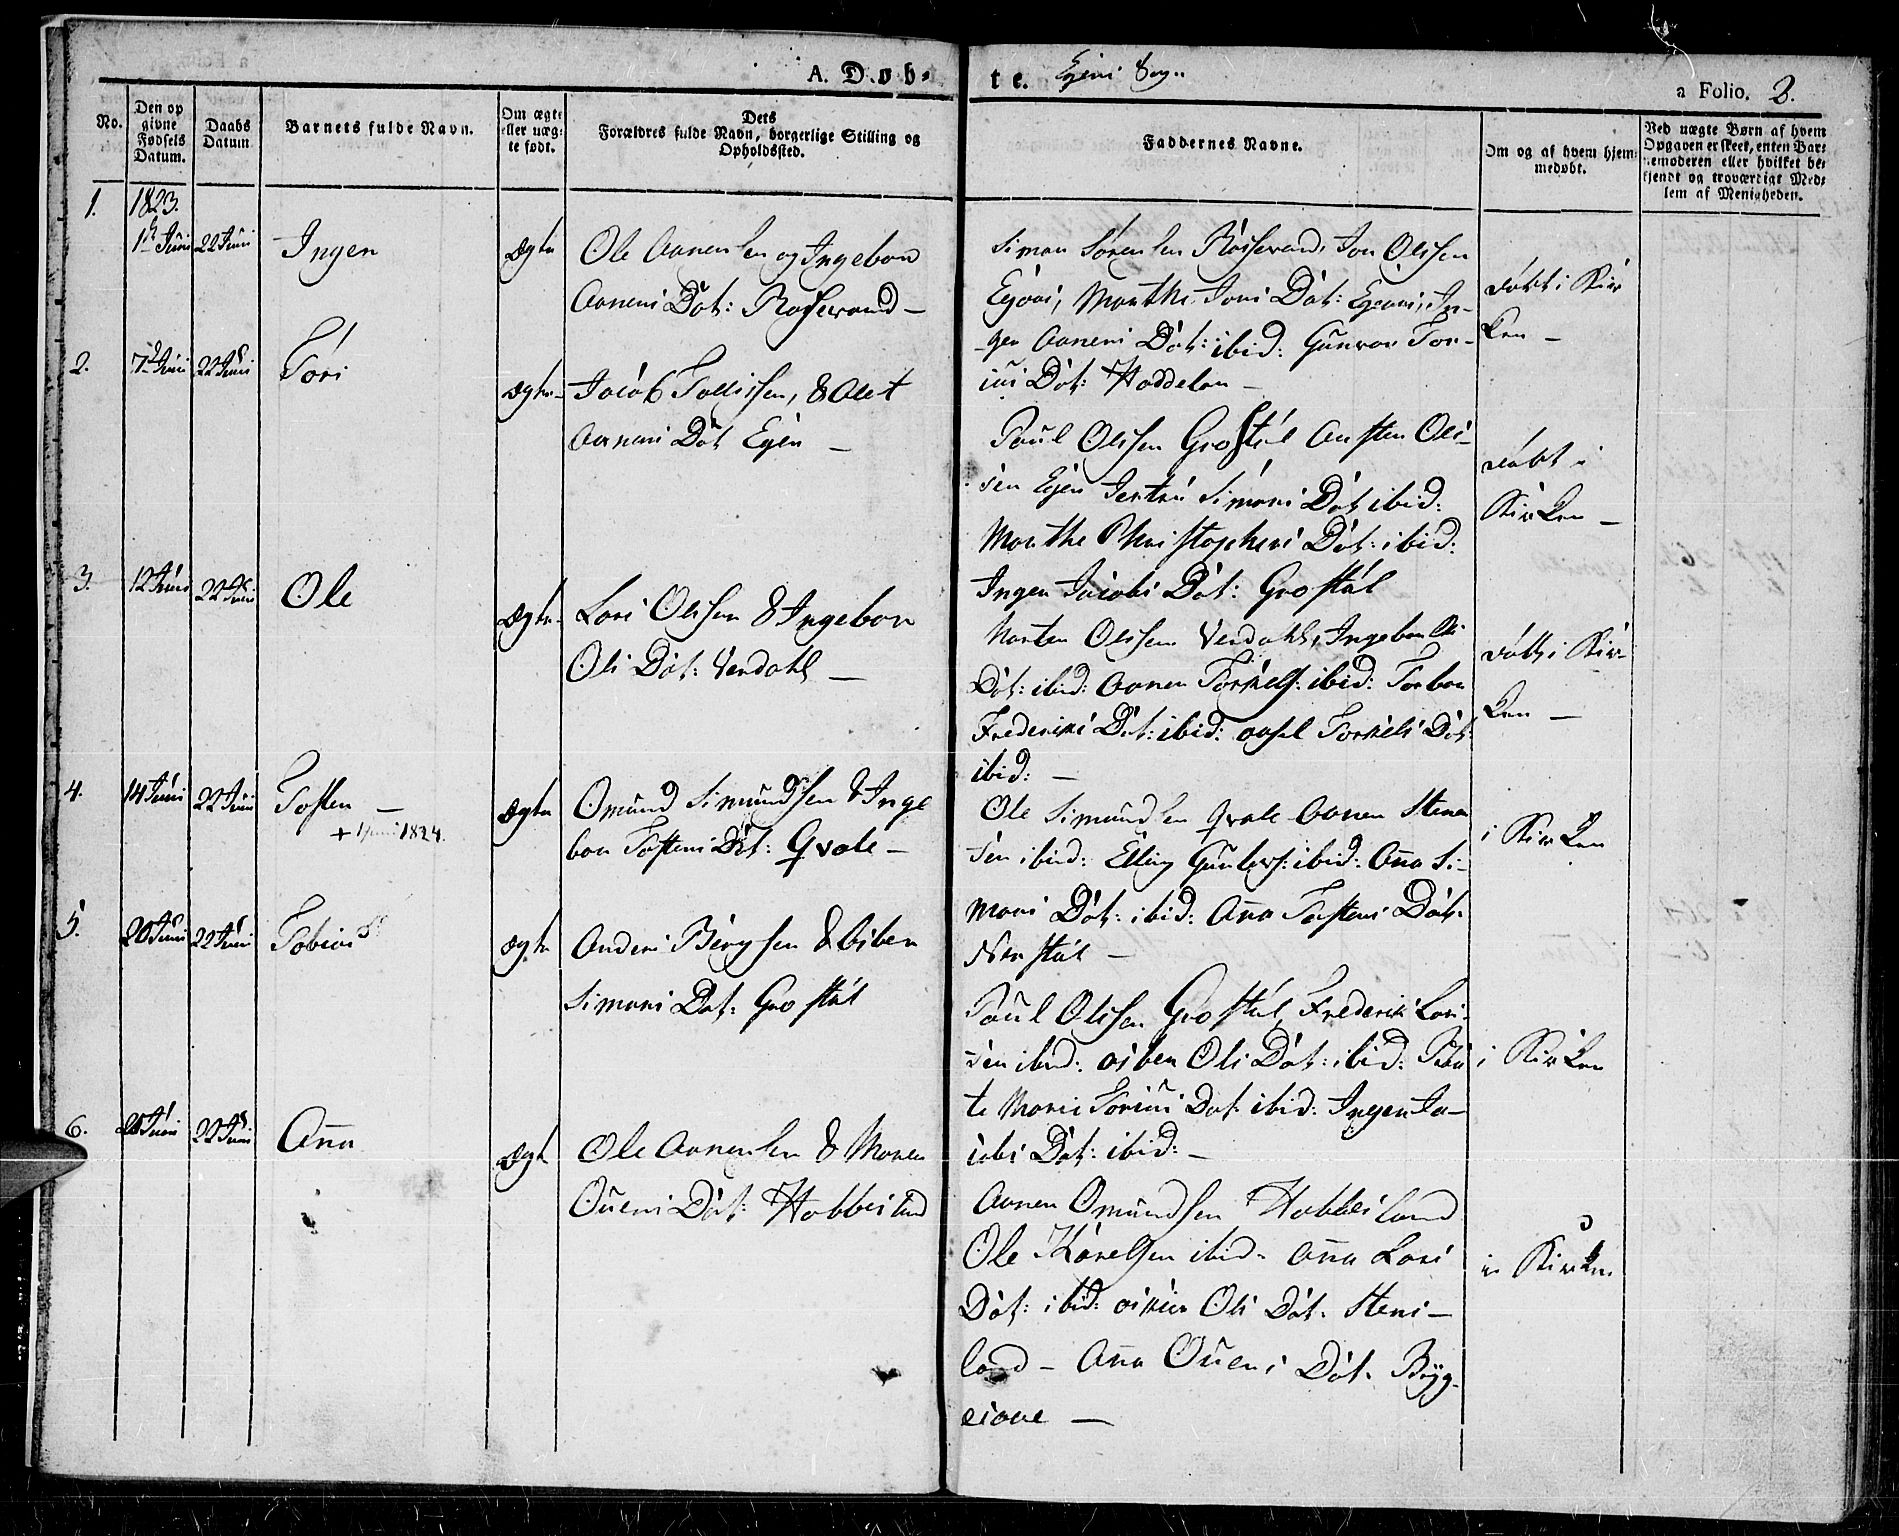 A. Døb-
te. Egens Sogn
a Folio. 2.
No.
Den opgivne Fødsels Datum.
Daabs Datum
Barnets fulde Navn.
Om ægte eller uægte født.
Dets Forældres fulde Navn, borgerlige Stilling og Opholdssted.
Faddernes Navne.
Om og af hvem hjemmedøbt.
Ved uægte Børn af hvem Opgaven er skeet, enten Barnemoderen eller hvilket bekjendt og troværdigt Medlem af Menigheden.
1.
1823.
1 Juni
22 Juni
Ingen
Ægte
Ole Aanensen og Ingebor
Aanens Dat: Rosserand –
Simon Sørensen Rosserand, Jon Olssen
Marthe Jons Dat: In-
gen Aanens Dat: ibid: Gunvor Tor-
Dat:
døbt i Kir
ken –
2.
7 Juni
22 Juni
Tori
Ægte
Jacob Tallissen, & Olet
Aanens Dat Egen –
Poul Olssen Grostøl Austen Ols-
sen Egen Simons Dat ibid:
Marthe Christophers Dat: ibid:
Ingen Jacobs Dat: Grostøl
døbt i
Kirken –
3.
12 Juni
22 Juni
Ole
Ægte
Lars Olssen & Ingebor
Ols Dat: Verdahl –
Morten Olssen Verdahl, Ingebor Ols
Dat: ibid: Aanen Torkels: ibid: Torbor
Frederiks Dat: ibid: Aasel Torkels Dat:
ibid: –
døbt i Kir-
ken –
4.
14 Juni
22 Juni
Tosten –
+ 1 Juni 1824.
Ægte
Omund Simundsen & Inge
bor Tostens Dat: Qvale –
Ole Simundsen Qvale Aanen Stenen
sen ibid: Elling Gunders: ibid: Aña Si-
mons Dat: ibid: Aña Tostens Dat:
i Kirken
5.
20 Juni
22 Juni
Tobias
Ægte
Anders Bergsen & Asben
Simons Dat: Grostøl
Poul Olssen Grostøl, Frederik Lars-
sen ibid: Asben Ols Dat: ibid:
te Marie Dat: ibid: Ingen Ja-
cobs Dat: ibid: –
i Kirken
6.
20 Juni
22 Juni
Aña
Ægte
Ole Aanensen & Maren
Ouens Dat: Hobbesland
Aanen Omundsen Hobbesland
Ole Kanelsen ibid: Aña Lars
Dat: ibid: Ols Dat: Stens-
land – Aña Ouens Dat: Byg-
i Kirken